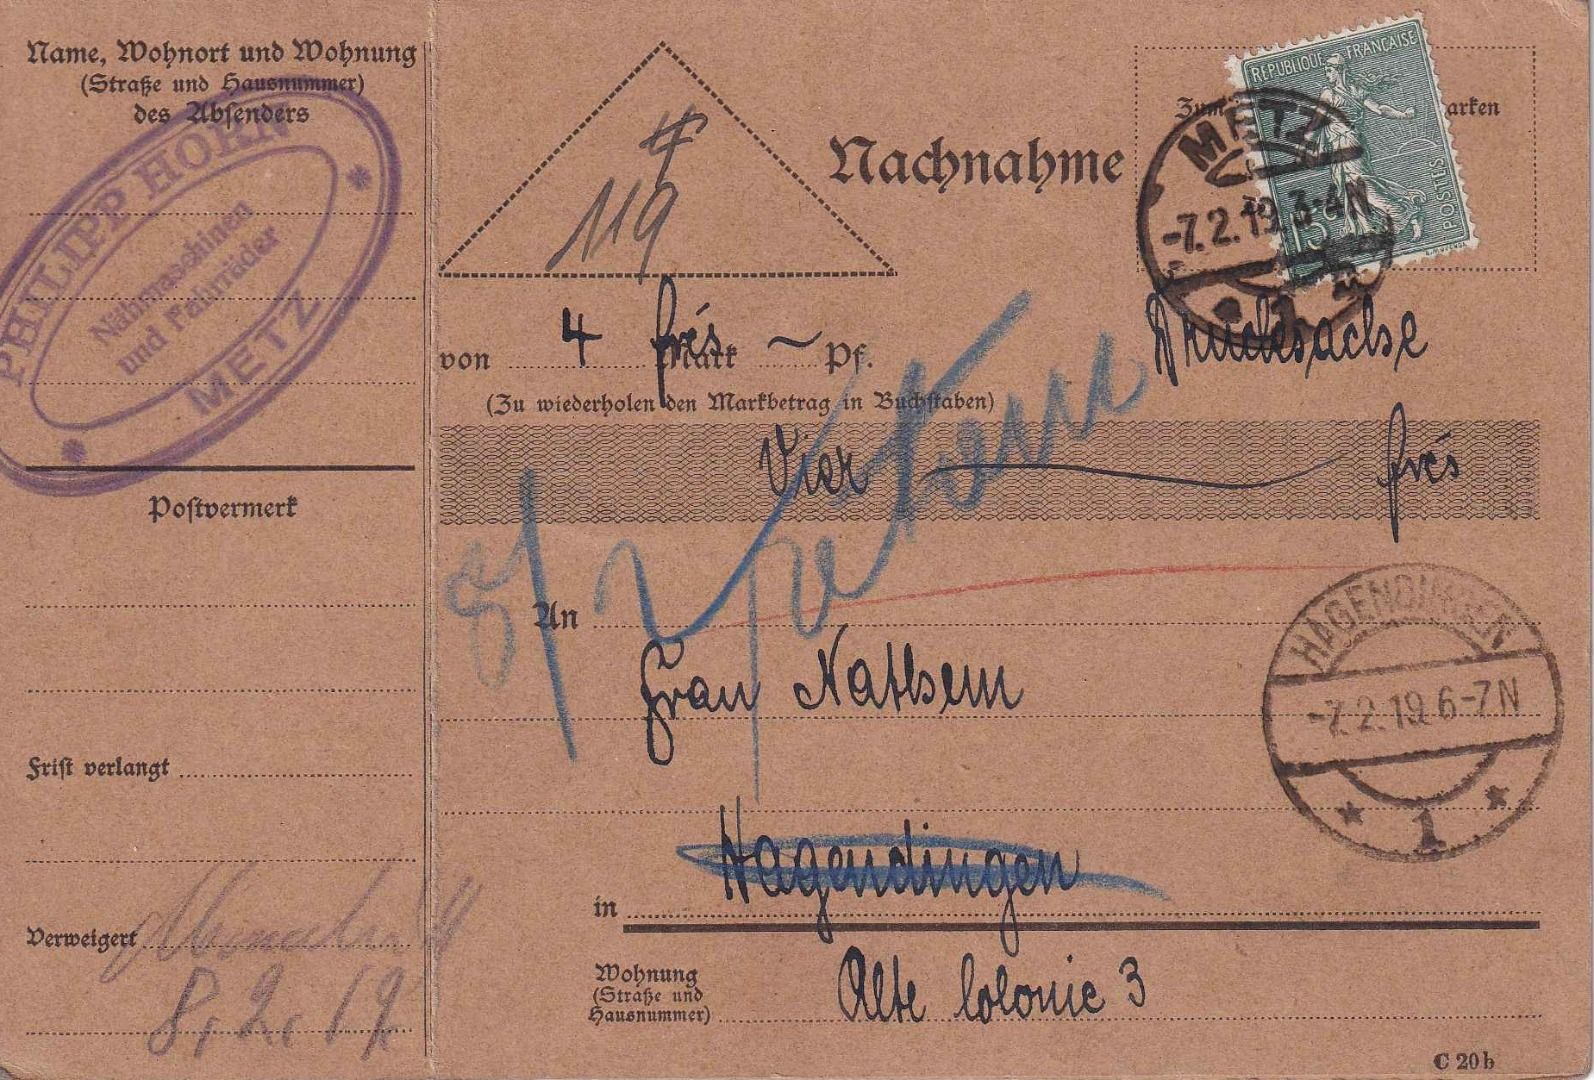 Name, Wohnort und Wohnung
(Straße und Hausnummer)
des Absenders
PHILIPP HORN
Nähmaschinen
und Fahrräder
METZ
Postvermerk
Frist verlangt
Verweigert
8. 2. 19
119
Nachnahme
Zum
arken
REPUBLIQUE FRANÇAISE
POSTES
15
METZ
-7.2.19. 3-4N
1
von 4 Mark frcs Pf.
Drucksache
(Zu wiederholen den Markbetrag in Buchstaben)
Vier frcs
An
Frau
HAGENDINGEN
-7.2.19. 6-7N
1
in Hagendingen
Wohnung
(Straße und
Hausnummer)
Alte Colonie 3
C 20b